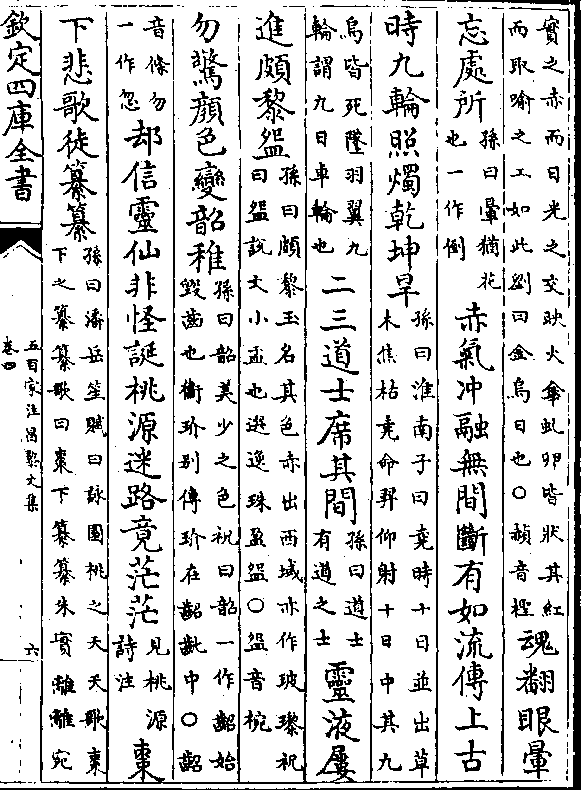 實之赤而日光之交映火傘虬卵皆狀其紅而取喻之工如此劉曰金烏日也○赬音檉魂翻眼暈
忘處所孫曰暈猶花也一作倒赤氣冲融無間斷有如流傳上古
時九輪照燭乾坤旱孫曰淮南子曰堯時十日並出草木焦枯堯命羿仰射十日中其九
烏皆死墮羽翼九輪謂九日車輪也二三道士席其間孫曰道士有道之士靈液屢
進頗黎盌孫曰頗黎玉名其色赤出西域亦作玻瓈祝曰盌說文小盂也選逸珠盈盌○盌音椀
勿驚顏色變韶稚孫曰韶美少之色祝曰韶一作齠始毀齒也衞玠别傳玠在齠齔中○齠
音條勿一作忽却信靈仙非怪誕桃源迷路竟茫茫見桃源詩注棗
下悲歌徒纂纂孫曰潘岳笙賦曰詠園桃之夭夭歌棗下之纂纂歌曰棗下纂纂朱實離離宛
欽定四庫全書
五百家注昌黎文集
卷四
六